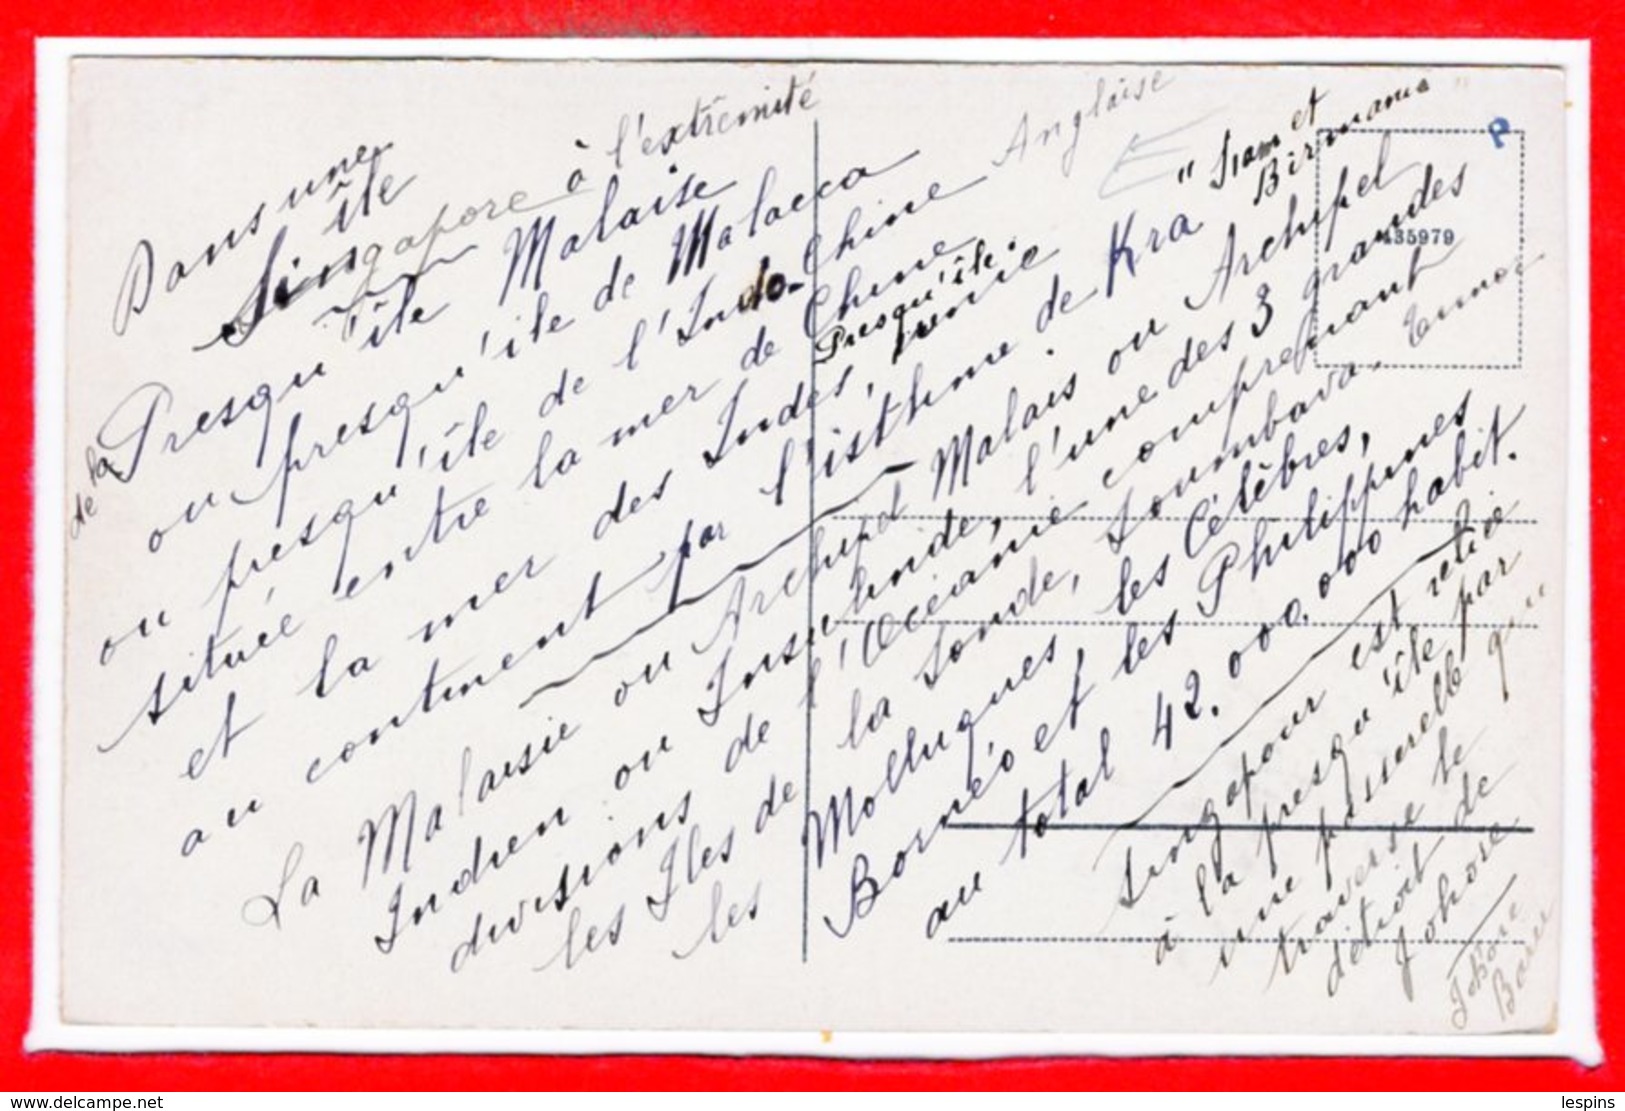 Dans une
île
Singapore à l'extrêmité
de la Presqu'île Malaise
ou presqu'ile de Malacca
ou presqu'île de l'Indo-Chine Anglaise
située entre la mer de Chine
et la mer des Indes, Presqu'île
au continent par l'isthme de Kra " Siam et
Birmanie "
La Malaisie ou Archipel Malais ou Archipel
Indien ou Insulinde, l'une des 3 grandes
divisions de l'Océanie comprenant
les Iles de la Sonde, Soumbava. Timor
les Molluques, les Célèbres,
Bornéo et les Philippines
au total 42.000.000 habit.
Singapour est reliée
à la presqu'île par
une passerelle qui
traverse le
détroit de
Johore
Johore
Barou
P
435979
www.delcampe.net
lespins